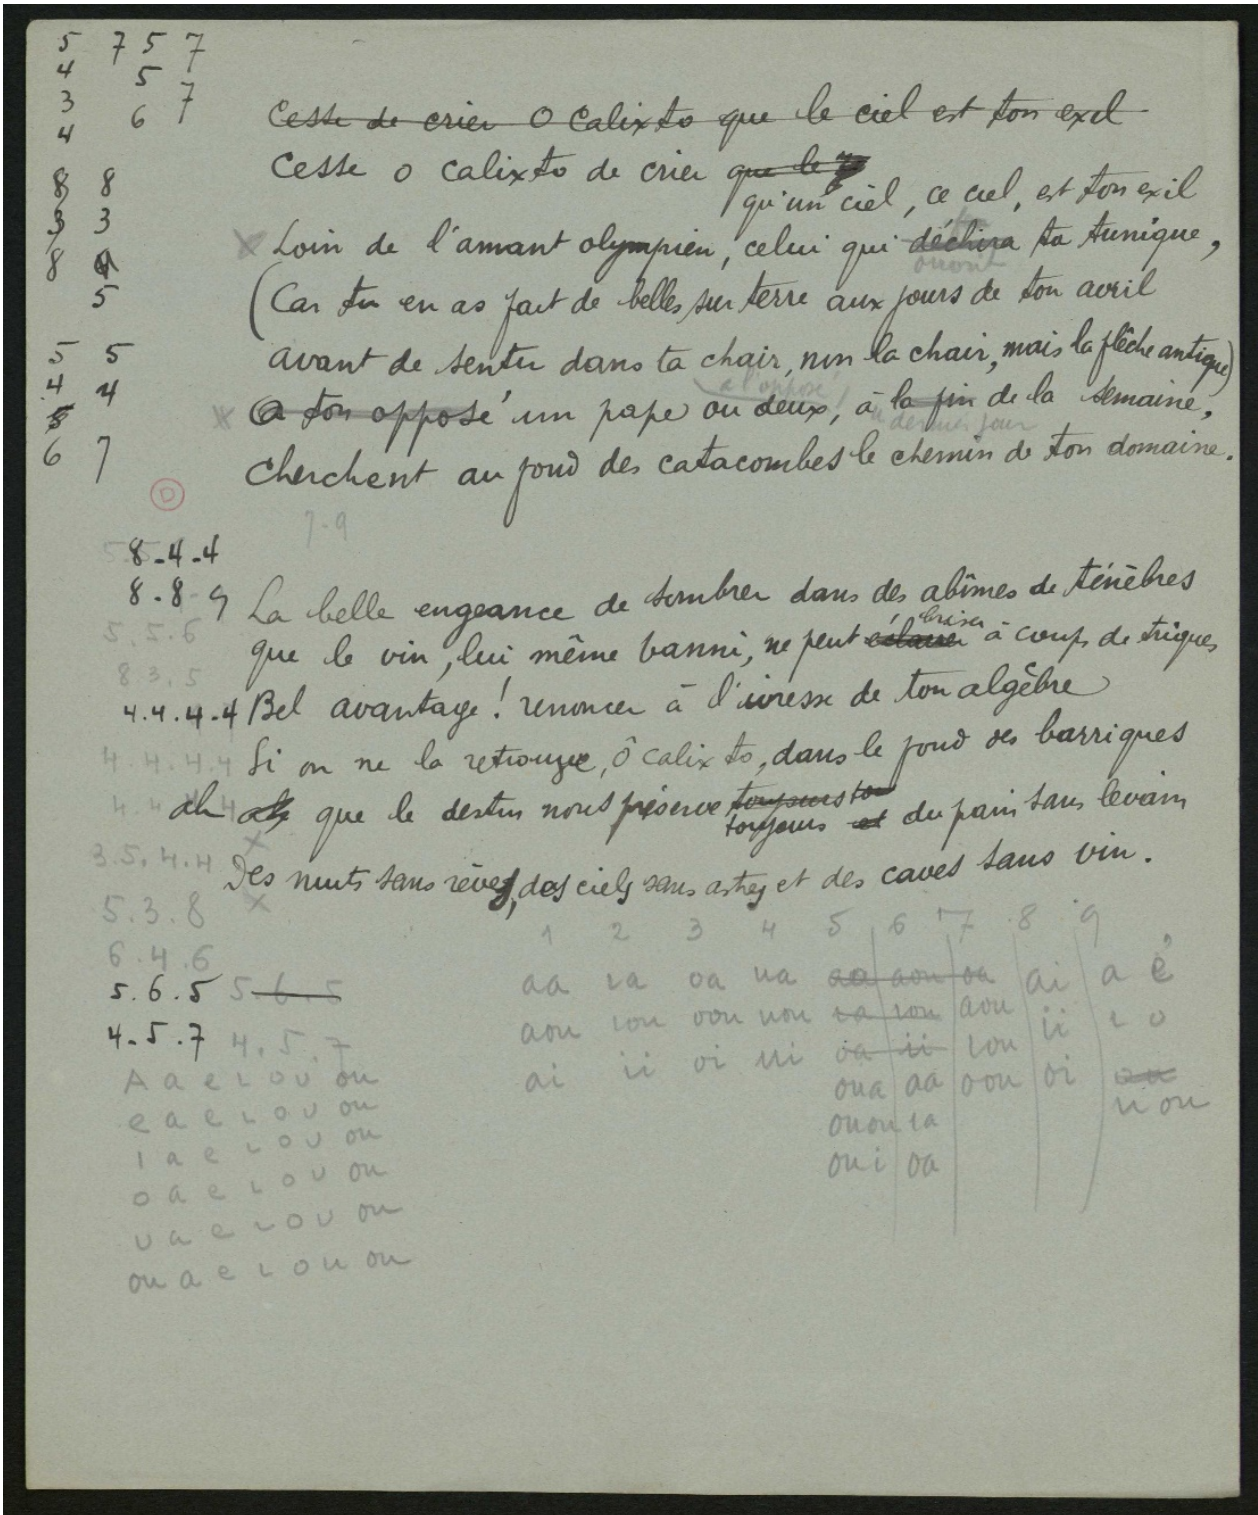 5 7 5 7
4 5 7
3 6
4
8 8
3 3
8
5
5 5
4 4
6 7
Cesse de crier O Calixto que le ciel est ton exil
Cesse o calixto de crier que le
qu'un ciel, ce ciel, est ton exil
Loin de l'amant olympien, celui qui déchira ta tunique,
(Car tu en as fait de belles sur terre aux jours de ton avril
avant de sentir dans ta chair, non la chair, mais la flêche antique)
à l'opposé
A ton opposé un pape ou deux, à la fin de la semaine,
dernier jour
Cherchent au fond des catacombes le chemin de ton domaine.
D
7-9
8-4-4
8-8-9
La belle engeance de sombrer dans des abîmes de ténèbres
5.5.6
briser
que le vin, lui même banni, ne peut éclairer à coups de triques
8 3.5
4.4.4.4 Bel avantage! renoncer à l'ivresse de ton algèbre
4.4.4.4 Si on ne la retrouve, ô calixto, dans le fond des barriques
4.4.4.4 ah que le destin nous préserve toujours
toujours et du pain sans levain
3.5.4.4
Des nuits sans rêves, des ciels sans astres et des caves sans vin.
5.3.8
6.4.6
5.6.5 5.6.5
4.5.7 4.5.7
1 2 3 4 5 6 7 8 9
aa ia oa ua aa aou oa ai a é
aou iou oou uou ia iou aou ii i o
ai ii oi ui oa ii iou oi
oua aa oou u ou
ouou ia
oui oa
A a e i o u ou
e a e i o u ou
i a e i o u ou
o a e i o u ou
u a e i o u ou
ou a e i o u ou